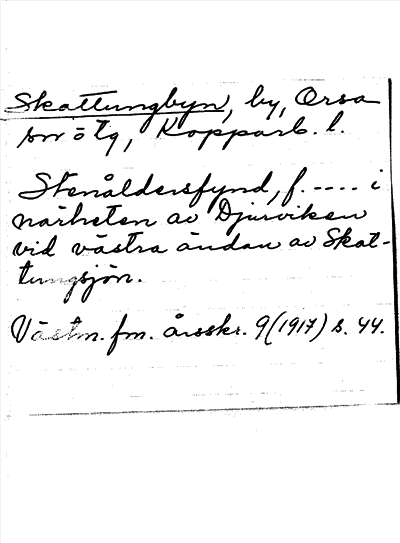 Skattungbyn, by, Orsa
sn o tg, Kopparb. l.
Stenåldersfynd, f. ---- i
närheten av Djurviken
vid västra ändan av Skat-
tungsjön.
Västm. fm. årsskr. 9 (1917) s. 44.